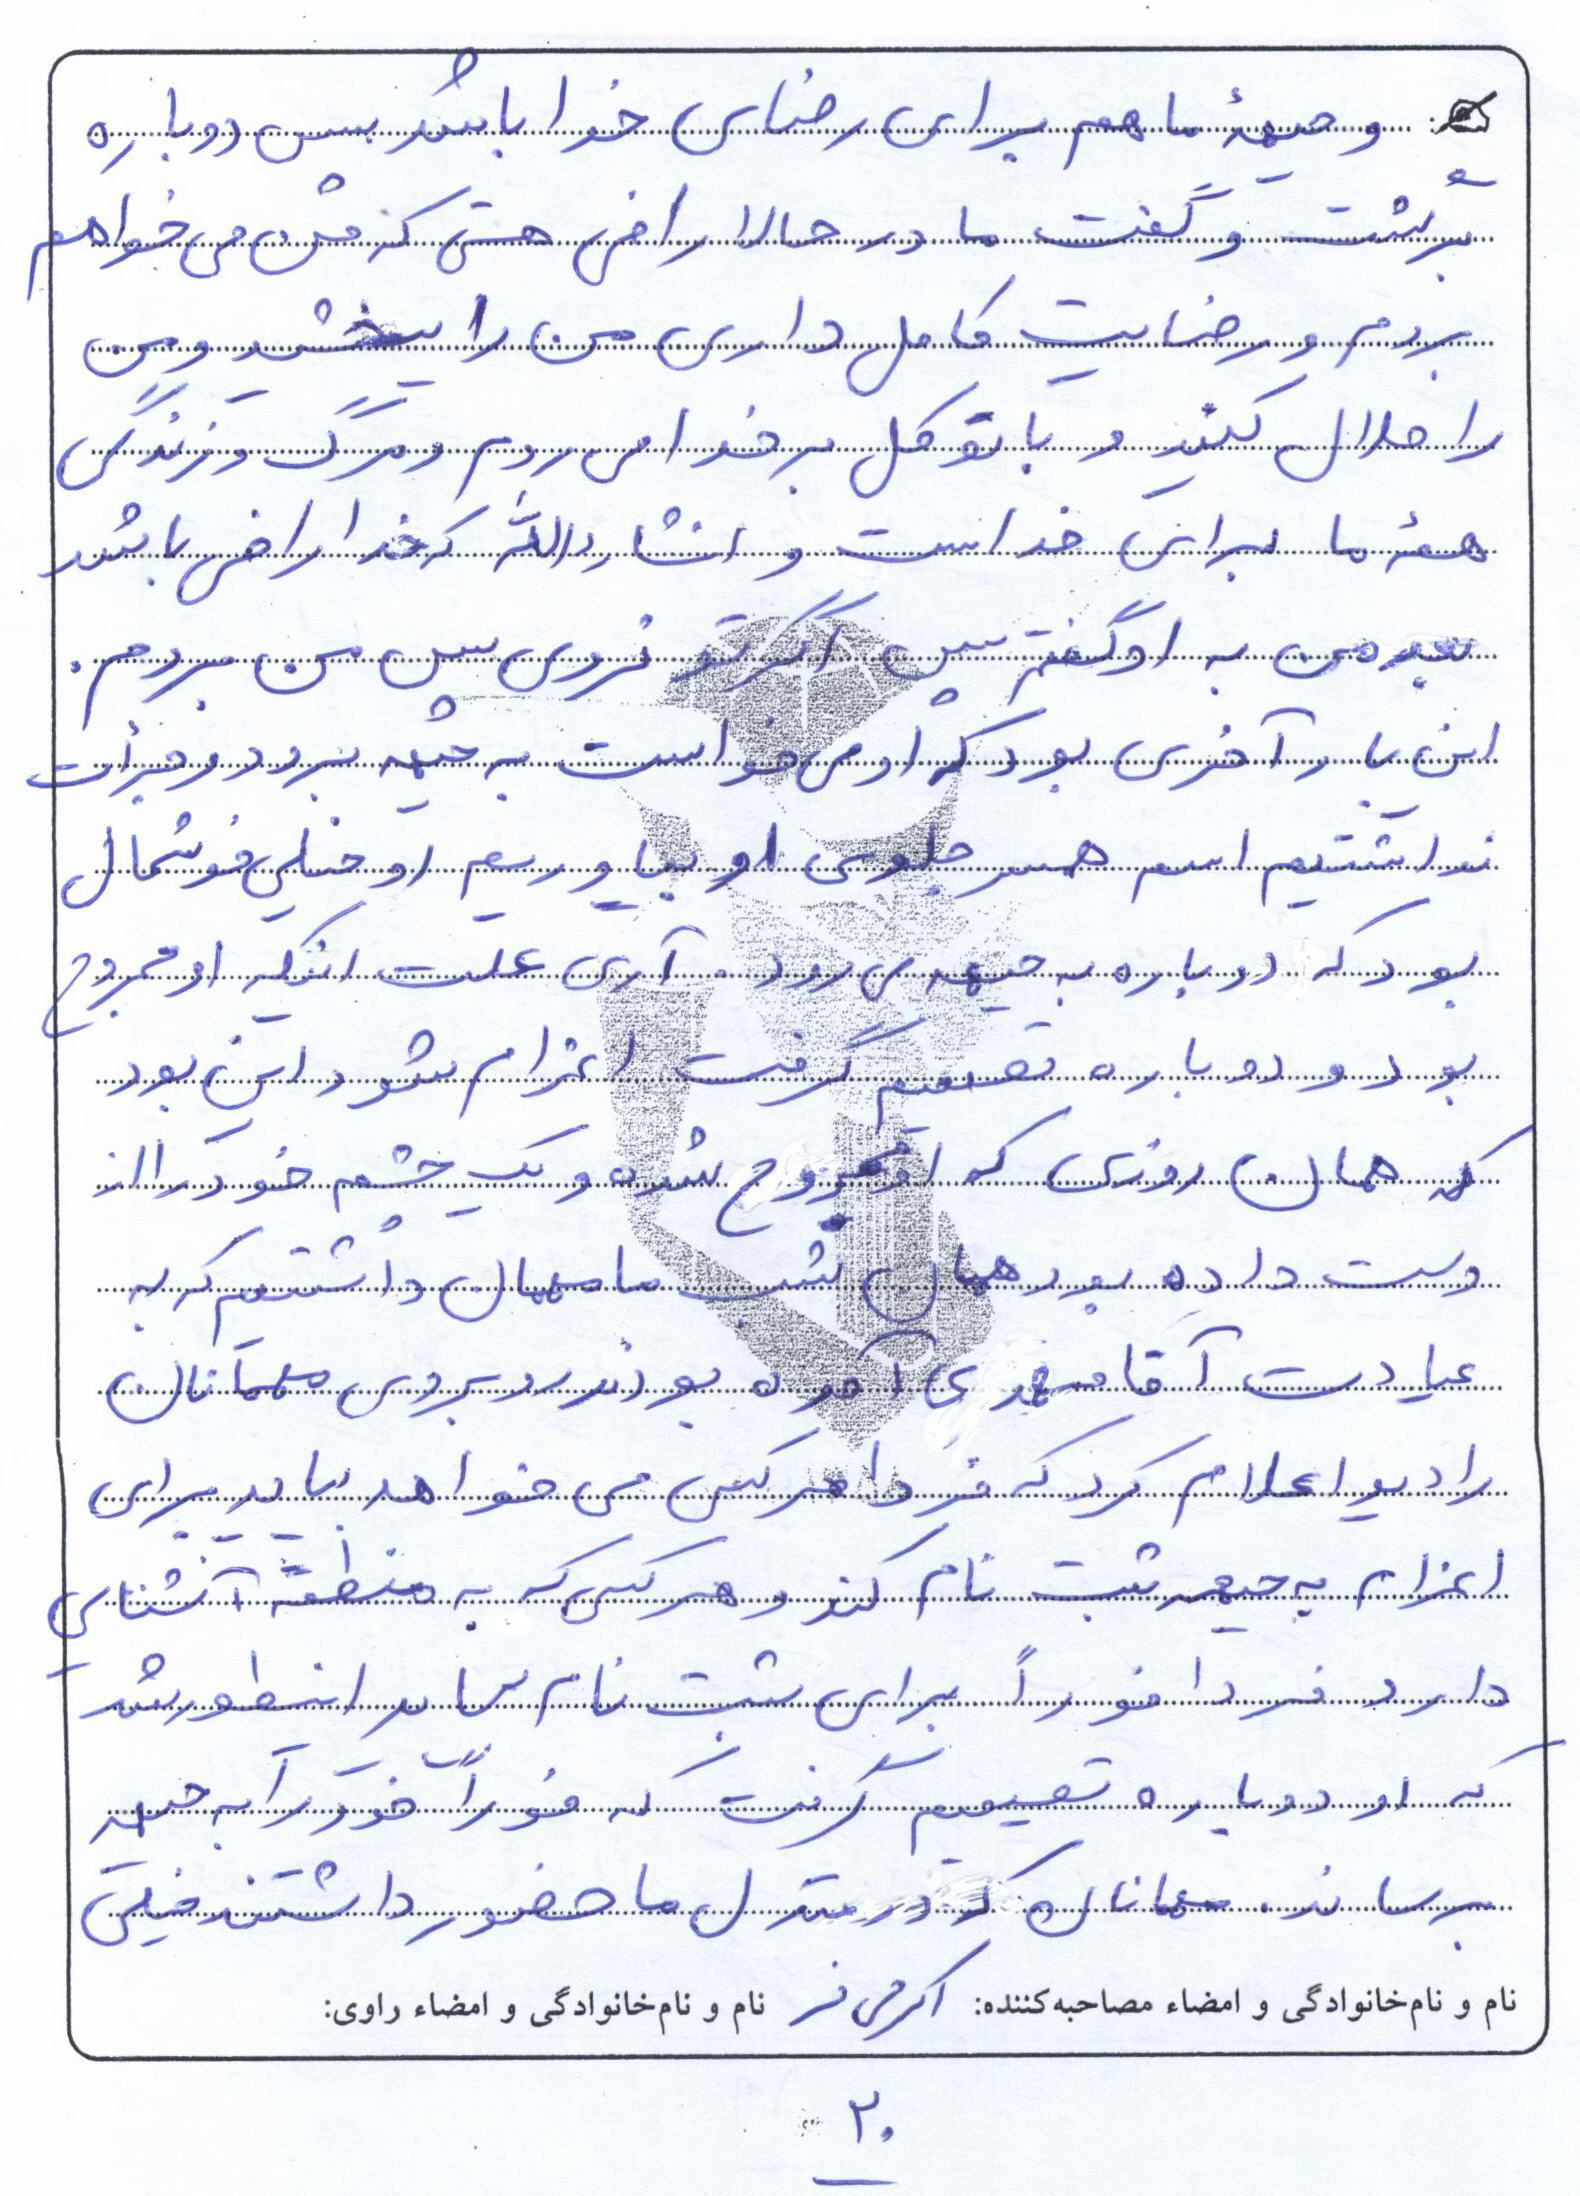 و جبههٔ ما هم برای رضای خدا باشد پس دوباره
برگشت و گفت مادر حالا راضی هستی که من می‌خواهم
بروم و رضایت کامل داری من را ببخشید و من
را حلال کنید و با توکل بر خدا می‌روم و مرگ و زندگی
همهٔ ما برای خداست و انشاءالله که خدا راضی باشد
بعد من به او گفتم پس اگر تو نروی پس من بروم.
این بار آخری بود که او می‌خواست به جبهه برود و جرأت
نداشتیم اسم همسر جلوی او بیاوریم او خیلی خوشحال
بود که دوباره به جبهه می‌رود. آری علت اینکه او مجروح
بود و دوباره تصمیم گرفت اعزام شود این بود
که همان روزی که او مجروح شده و یک چشم خود را از
دست داده بود همان شب ما مهمان داشتیم که به
عیادت آقا مهدی آمده بودند روبروی مهمانان
رادیو اعلام کرد که فردا هر کس می‌خواهد بیاید برای
اعزام به جبهه ثبت نام کند و هر کسی که به منطقه آشنایی
دارد فردا فوراً برای ثبت نام بیاید اینطور شد
که او دوباره تصمیم گرفت که فوراً خود را به جبهه
برساند. مهمانان که در منزل ما حضور داشتند خیلی
نام و نام‌خانوادگی و امضاء مصاحبه‌کننده: نام و نام‌خانوادگی و امضاء راوی:
۲۰